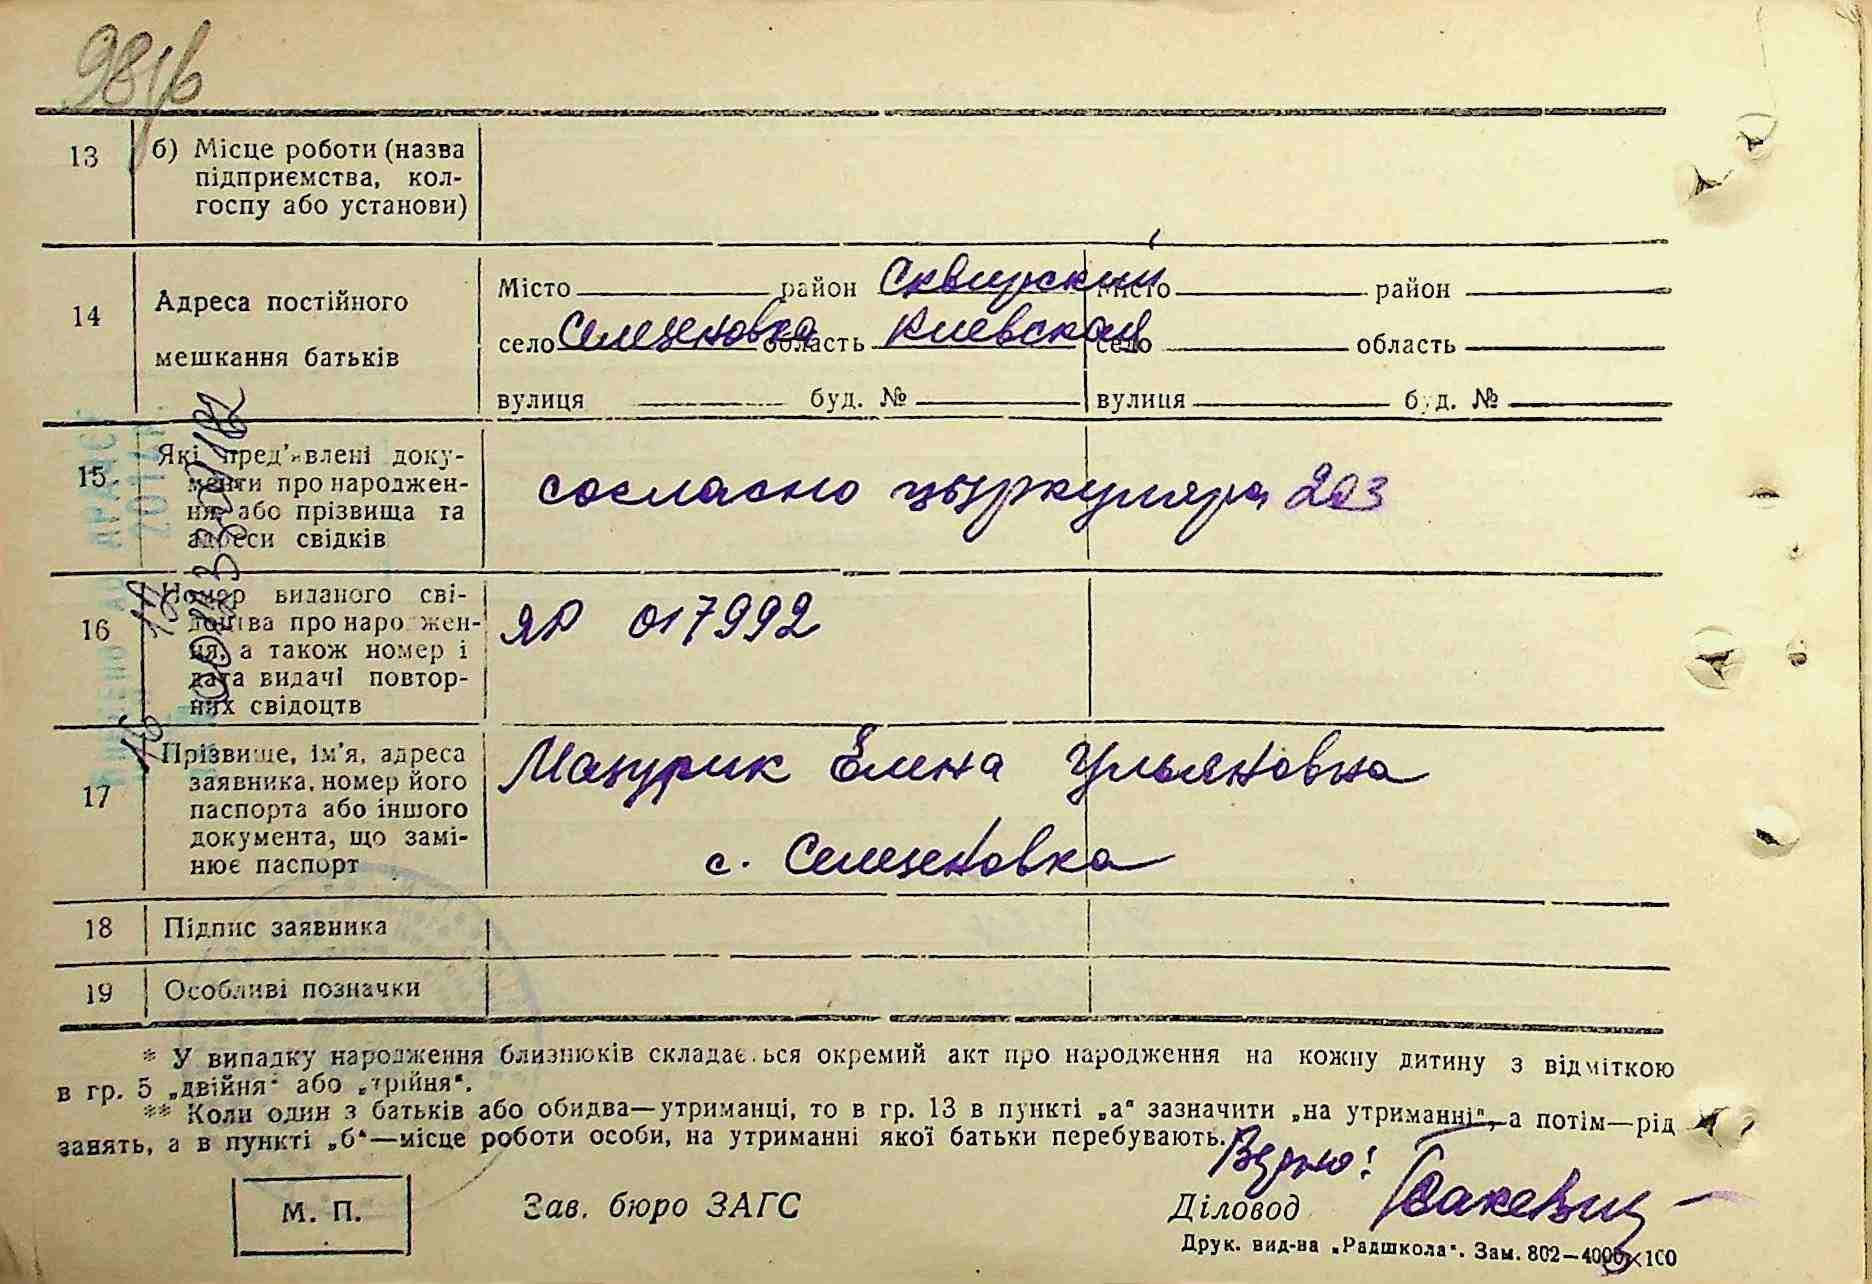 13 б) Місце роботи (назва
підприємства, кол-
госпу або установи)
14 Адреса постійного
мешкання батьків
Місто район Сквирский Місто район
село Селезеновка область Киевская село область
вулиця буд. № вулиця буд. №
15. Які пред'явлені доку-
менти про народжен-
ня або прізвища та
адреси свідків
согласно цыркуляра 203
16 Номер виданого сві-
доцтва про народжен-
ня, а також номер і
дата видачі повтор-
них свідоцтв
ЯР 017992
17 Прізвище, ім'я, адреса
заявника, номер його
паспорта або іншого
документа, що замі-
нює паспорт
Мазурик Елена Ульяновна
с. Селезеновка
18 Підпис заявника
19 Особливі позначки
* У випадку народження близнюків складається окремий акт про народження на кожну дитину з відміткою
в гр. 5 „двійня“ або „трійня“.
** Коли один з батьків або обидва—утриманці, то в гр. 13 в пункті „а“ зазначити „на утриманні“, а потім—рід
занять, а в пункті „б“—місце роботи особи, на утриманні якої батьки перебувають.
Верно!
М. П.
Зав. бюро ЗАГС
Діловод
Друк. вид-ва „Радшкола“. Зам. 802—4000×100